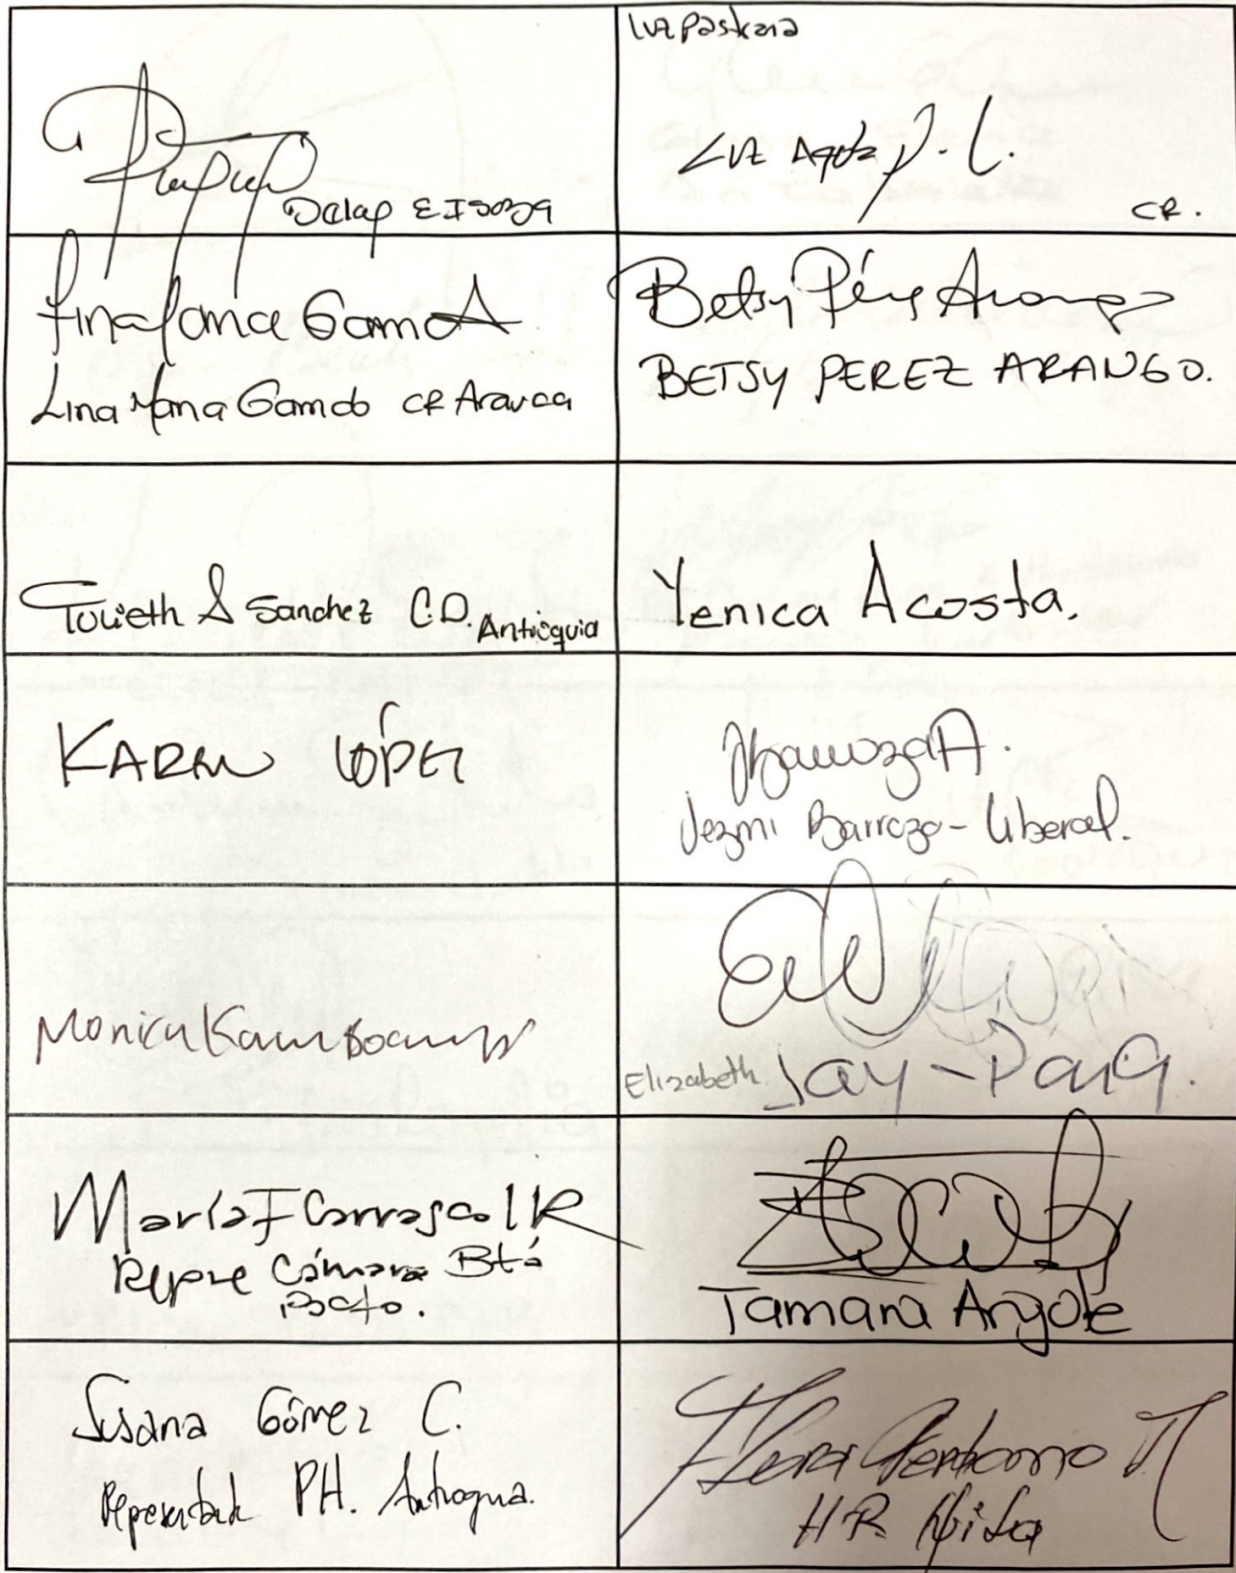 Luz Pastrana
Luz
CR.
Lina Maria Garrido
Lina Maria Garrido CR Arauca
Betsy Pérez Arango
BETSY PEREZ ARANGO.
Yulieth A Sanchez C.D. Antioquia
Yenica Acosta.
KAREN LÓPEZ
Yezmi Barrazo - Liberal.
Monica Karin Bocanegra
Elizabeth Jay-Pang.
María F Carrascal R
Repre Cámara Btá
Pacto.
Tamara Argote
Susana Gómez C.
Representante PH. Antioquia.
Flora Perdomo
H.R Huila